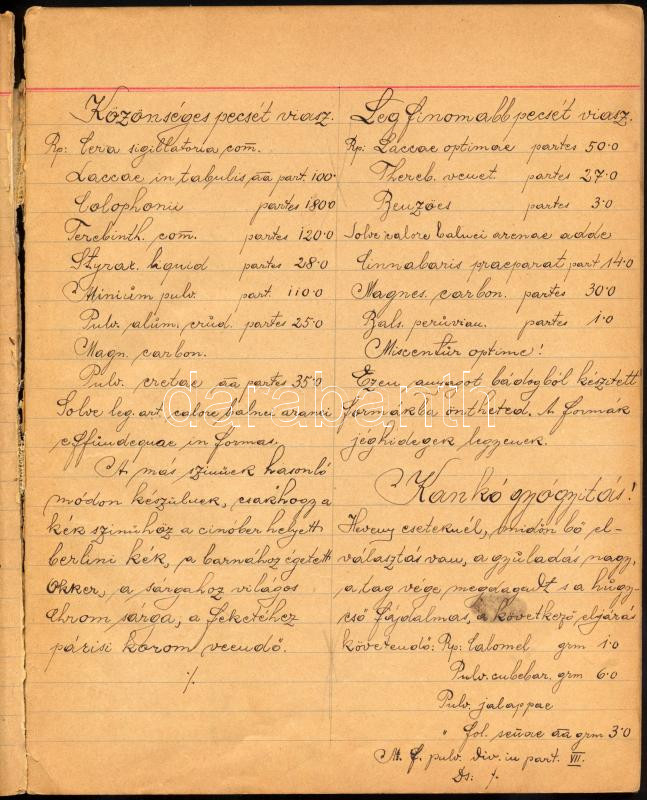 Közönséges pecsét viasz.
Rp: Cera sigillatoria com.
Laccae in tabulis āā part. 100·
Colophonii partes 180·0
Terebinth. com. partes 120·0
Styrax. liquid partes 28·0
Minium pulv. part. 110·0
Pulv. alum. crud. partes 25·0
Magn. carbon.
Pulv. cretae āā partes 35·0
Solve leg. art. calore balnei arenei
effundequae in formas.
A más szinüek hasonló
módon készülnek, csakhogy a
kék szinühöz a cinóber helyett
berlini kék, a barnához égetett
okker, a sárgához világos
chrom sárga, a feketéhez
párisi korom veendő.
·/.
Legfinomabb pecsét viasz.
Rp: Laccae optimae partes 50·0
Thereb. venet. partes 27·0
Benzões partes 3·0
Solve calore balnei arenae adde
Cinnabaris praeparat part 14·0
Magnes. carbon. partes 30·0
Bals. peruvian. partes 1·0
Miscentur optime!
Ezen anyagot bádogból készített
formákba öntheted. A formák
jéghidegek legyenek.
Kankó gyógyitás!
Heveny eseteknél, midőn bő el-
választás van, a gyuladás nagy,
a tag vége megdagadt s a húgy-
cső fájdalmas, a következő eljárás
követendő: Rp: Calomel grm 1·0
Pulv. cubebar. grm 6·0
Pulv. jalappae
" fol. sennae āā grm 3·0
M. f. pulv. div. in part. VII.
Ds: ·/.
darabanth